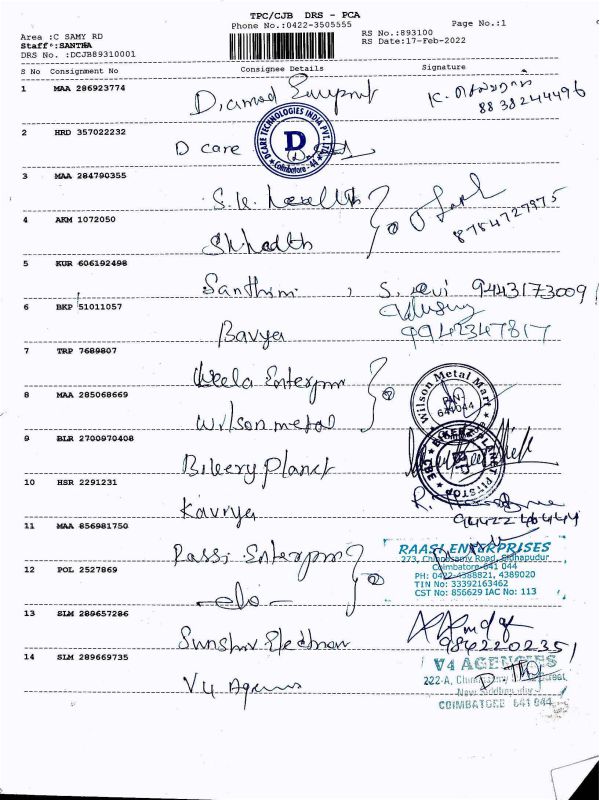 TPC/CJB DRS - PCA
Phone No.:0422-3505555
Page No.:1
Area :C SAMY RD
RS No.:893100
Staff :SANTHA
RS Date:17-Feb-2022
DRS No. :DCJB89310001
S No Consignment No Consignee Details Signature
1 MAA 286923774
8838244496
2 HRD 357022232
D care
DCARE TECHNOLOGIES INDIA PVT. LTD.
D
Coimbatore - 44
3 MAA 284790355
S.K. Health
4 AKM 1072050
SK Health
8754727975
5 KUR 606192498
Santhini , S. Devi 9443173009
6 BKP 51011057
Bavya
9942347817
7 TRP 7689807
8 MAA 285068669
Wilson metal
Wilson Metal Mart
PIN
641044
9 BLR 2700970408
Bikery Planet
BIKERZ PLANET
PITSTOP
CBE
10 HSR 2291231
Kavya
11 MAA 856981750
RAASI ENTERPRISES
273, Chinnasamy Road, Sidhapudur
Coimbatore-641 044
12 POL 2527869
PH: 0422-4388821, 4389020
TIN No: 33392163462
CST No: 856629 IAC No: 113
13 SLM 289657286
9842202351
14 SLM 289669735
V4 Agencies
V4 AGENCIES
222-A,
COIMBATORE 641 044